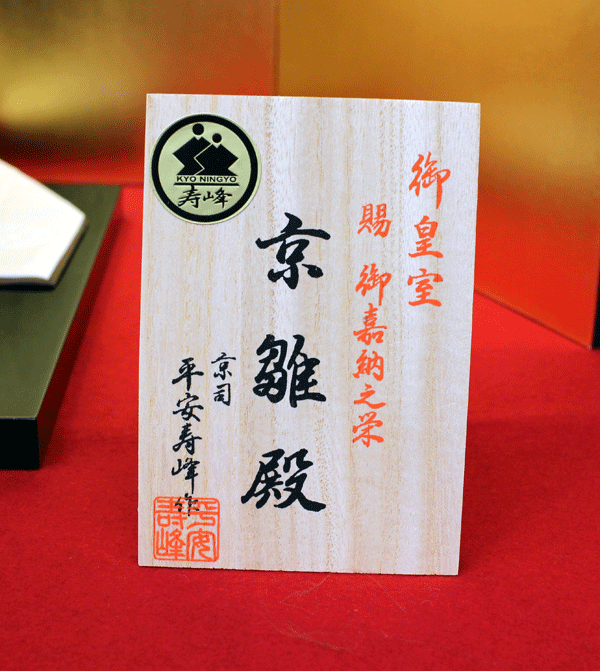 御皇室
賜 御嘉納之栄
京雛殿
京司
平安寿峰作
KYO NINGYO
寿峰
平安
寿峰